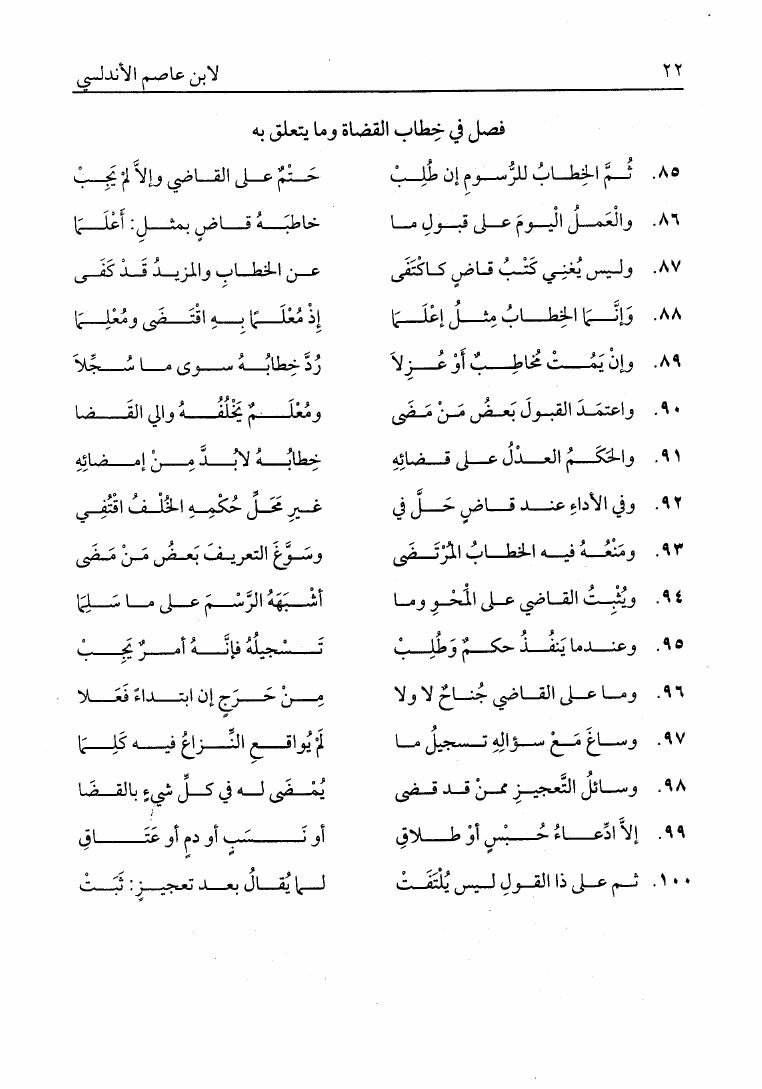 ٢٢ لابن عاصم الأندلسي
فصل في خِطاب القضاة وما يتعلق به
٨٥. ثُمَّ الخِطابُ للرُّسومِ إن طُلِبْ حَتْمٌ على القاضي وإلاَّ لمْ يَجِبْ
٨٦. والْعَملُ اليْومَ على قبولِ ما خاطبَهُ قاضٍ بمثلِ: أَعْلَمَا
٨٧. وليس يُغْنِي كَتْبُ قاضٍ كاكْتَفَى عن الخطابِ والمزيدُ قَدْ كَفَى
٨٨. وَإنَّما الخِطابُ مِثلُ إعْلَما إذْ مُعْلَمًا بِهِ اقْتَضَى ومُعْلِمَا
٨٩. وإنْ يَمُتْ مُخاطِبٌ أوْ عُزِلاَ رُدَّ خِطابُهُ سوى ما سُجِّلاَ
٩٠. واعتمَدَ القبولَ بَعْضُ مَنْ مَضَى ومُعْلَمٌ يَخْلُفُهُ والي القَضَا
٩١. والحَكَمُ العدْلُ على قضائِهِ خِطابُهُ لابُدَّ مِنْ إمضائِهِ
٩٢. وفي الأداءِ عند قاضٍ حَلَّ في غيرِ مَحَلِّ حُكْمِهِ الخُلْفُ اقْتُفِي
٩٣. ومَنْعُهُ فيه الخطابُ المُرْتَضَى وسَوَّغَ التعريفَ بَعضُ مَنْ مَضَى
٩٤. ويُثْبِتُ القاضي على المَحْوِ وما أشْبَهَهُ الرَّسْمَ على ما سَلِمَا
٩٥. وعندما يَنفُذُ حكمٌ وَطُلِبْ تَسْجيلُهُ فإنَّهُ أمرٌ يَجِبْ
٩٦. وما على القاضي جُناحٌ لا ولا مِنْ حَرَجٍ إن ابتداءً فَعَلا
٩٧. وساغَ مَعْ سؤالِهِ تسجيلُ ما لمْ يُواقعِ النِّزاعُ فيه كَلِمَا
٩٨. وسائلُ التَّعجيزِ ممنْ قد قضى يُمْضَى له في كلِّ شيءٍ بالقضَا
٩٩. إلاَّ ادِّعاءُ حُبْسٍ أوْ طلاقِ أو نَسَبٍ أو دمٍ أو عَتَاقِ
١٠٠. ثم على ذا القولِ ليس يُلْتَفَتْ لما يُقالُ بعد تعجيزٍ: ثَبَتْ